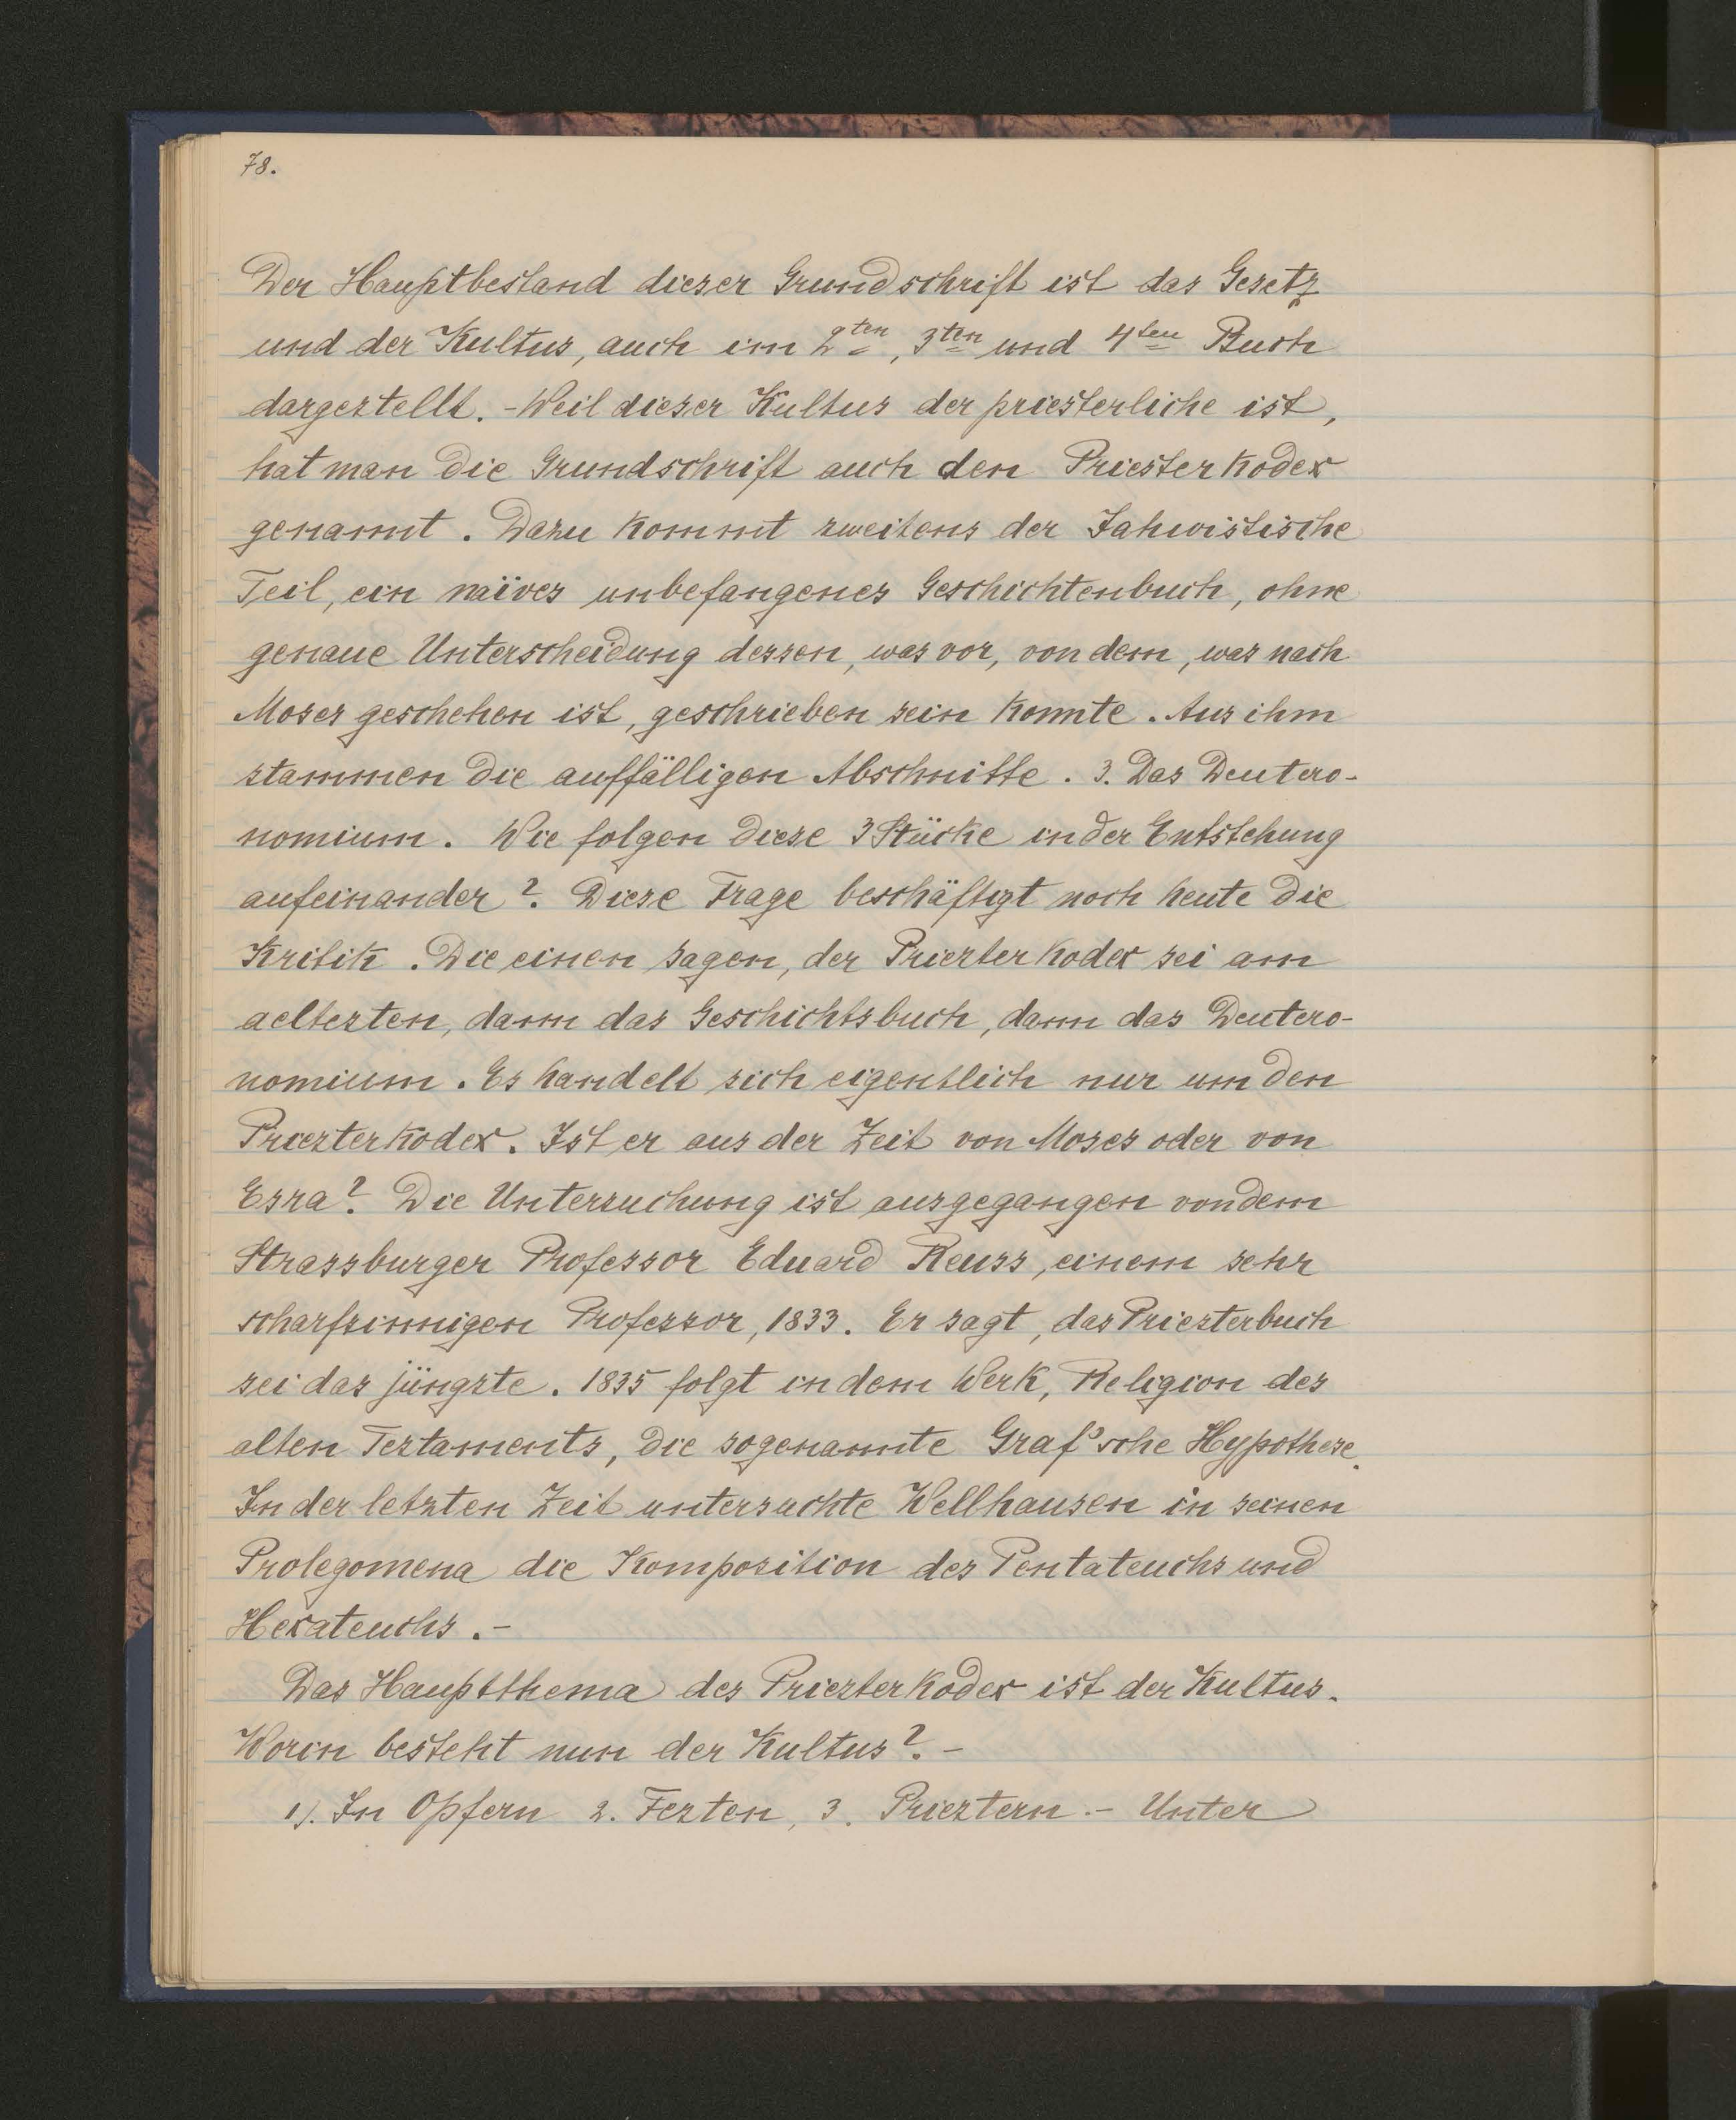 78.
Der Hauptbestand dieser Grundschrift ist das Gesetz
und der Kultus, auch im 2ten, 3ten und 4ten Buch
dargestellt. - Weil dieser Kultus der priesterliche ist,
hat man die Grundschrift auch den Priesterkodex
genannt. Dazu kommt zweitens der Jahwistische
Teil, ein naïves unbefangenes Geschichtenbuch, ohne
genaue Unterscheidung dessen, was vor, von dem, was nach
Moses geschehen ist, geschrieben sein konnte. Aus ihm
stammen die auffälligen Abschnitte. 3. Das Deutero-
nomium. Wie folgen diese 3 Stücke in der Entstehung
aufeinander? Diese Frage beschäftigt noch heute die
Kritik. Die einen sagen, der Priesterkodex sei am
aeltesten, dann das Geschichtsbuch, dann das Deutero-
nomium. Es handelt sich eigentlich nur um den
Priesterkodex. Ist er aus der Zeit von Moses oder von
Esra? Die Untersuchung ist ausgegangen von dem
Strassburger Professor Eduard Reuss, einem sehr
scharfsinnigen Professor, 1833. Er sagt, das Priesterbuch
sei das jüngste. 1835 folgt in dem Werk, Religion des
alten Testaments, die sogenannte Graf'sche Hypothese.
In der letzten Zeit untersuchte Wellhausen in seinen
Prolegomena die Komposition des Pentateuchs und
Hexateuchs. -
Das Hauptthema des Priesterkodex ist der Kultus.
Worin besteht nun der Kultus? -
1). In Opfern 2. Festen, 3. Priestern. - Unter